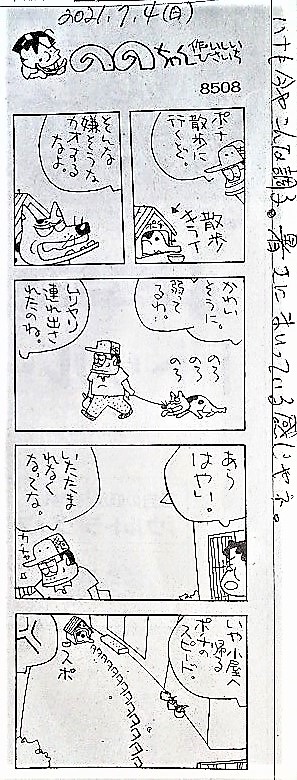 2021.7.4(日)
ののちゃん
作・いしいひさいち
8508
ハナも今やこんな調子。暑さにまいっている感じやネ。
ポチ
散歩に
行くぞ。
散歩
キライ
そんな
嫌そうな
カオする
なよ。
かわい
そうに。
弱って
るわ。
ムリヤリ
連れ出さ
れたのね。
のろ
のろ
のろ
あら
はやい。
いたたま
れなく
なってな。
いや小屋へ
帰る
ポチの
スピード。
スポ